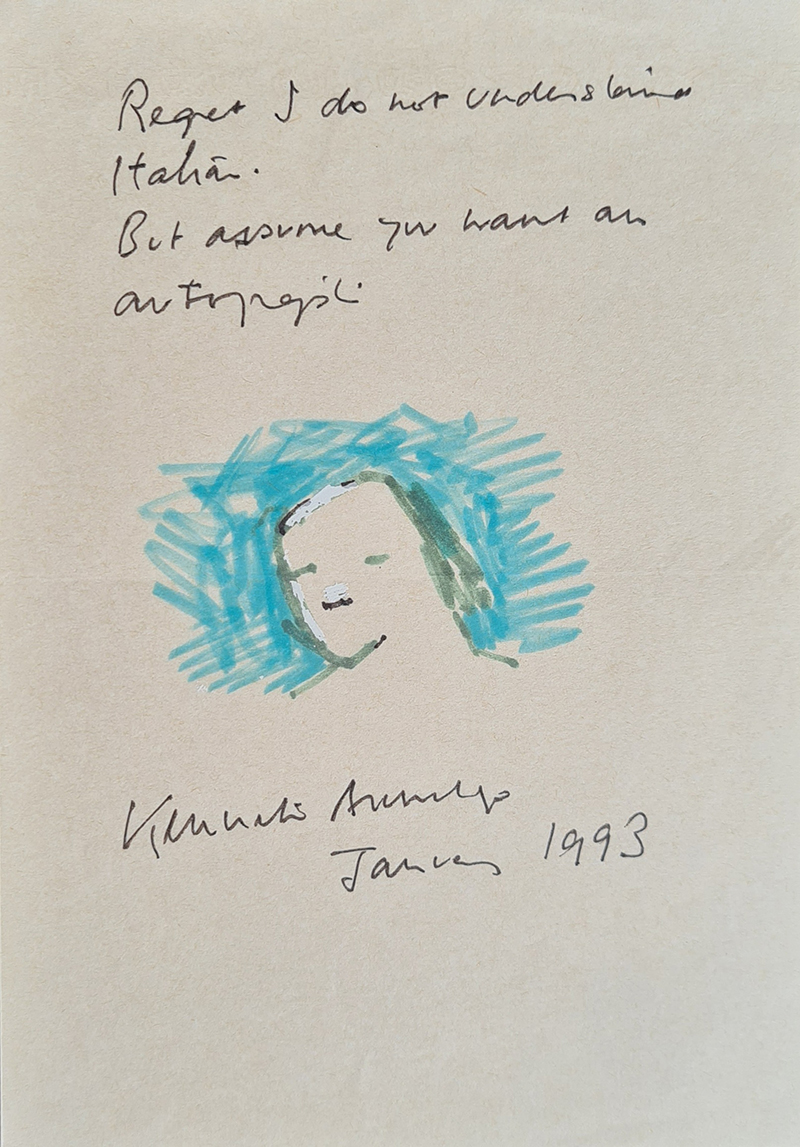 Regret I do not understand
Italian.
But assume you want an
autograph
Kenneth Armitage
January 1993